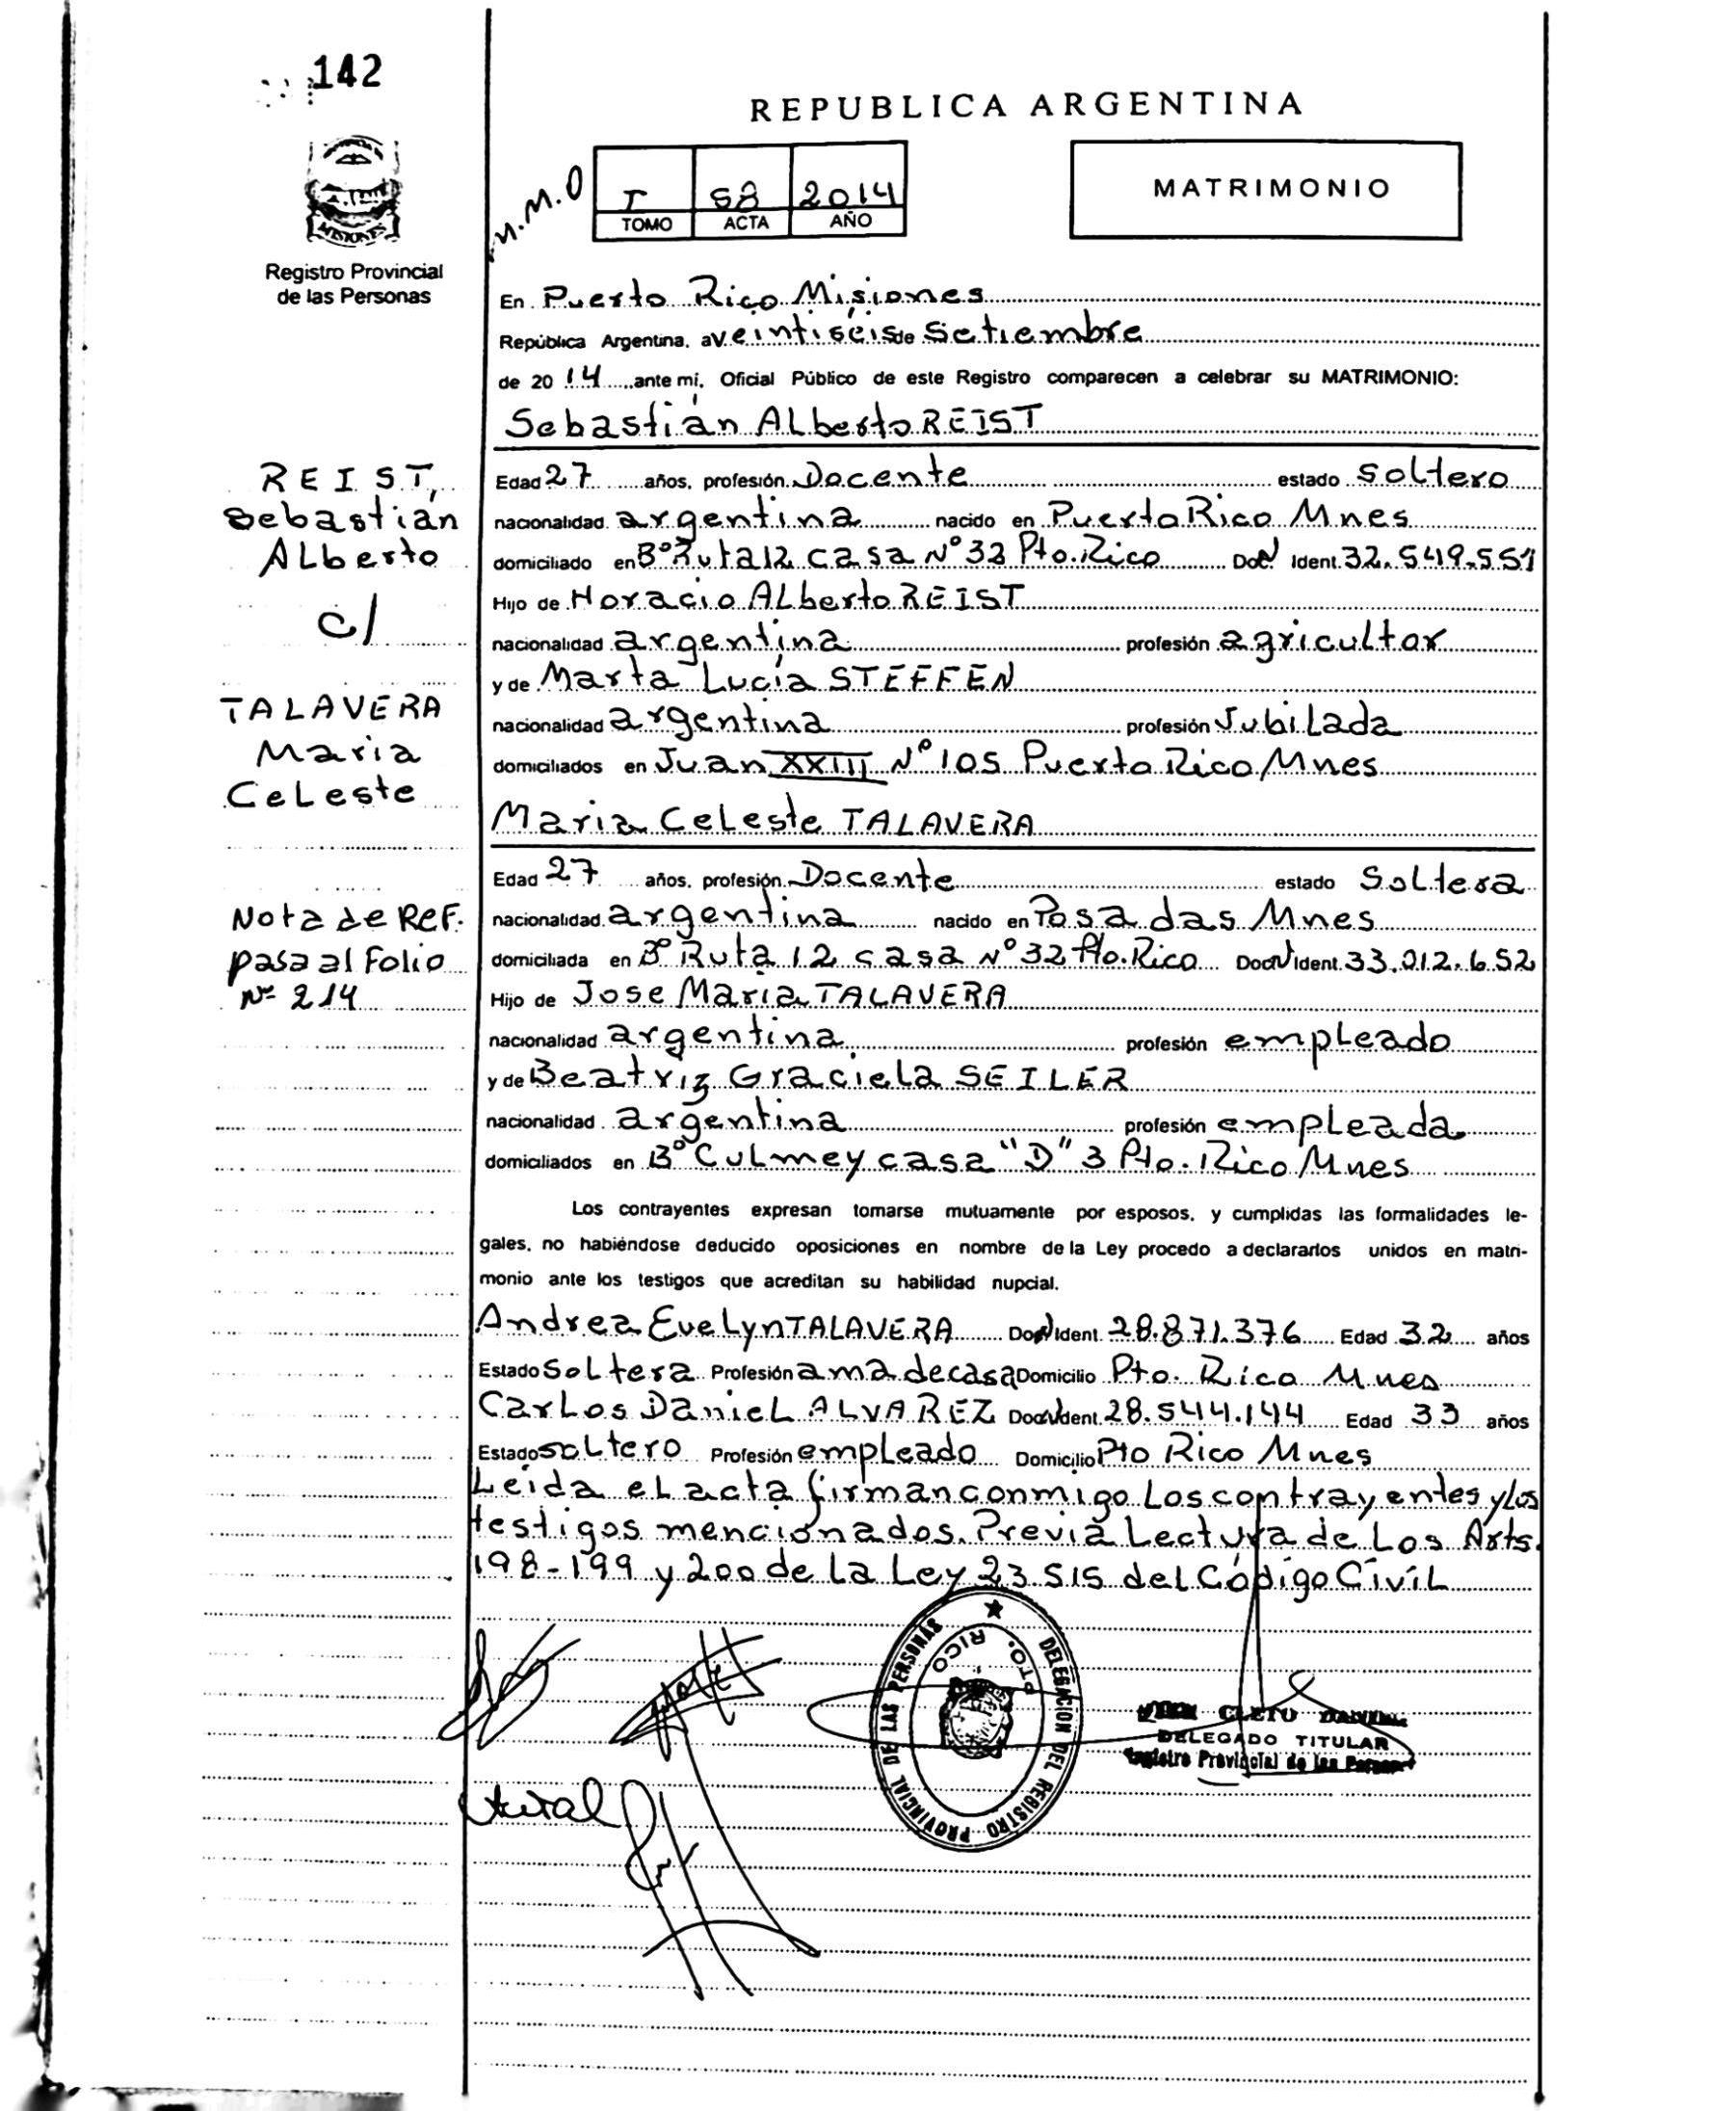 142
REPUBLICA ARGENTINA
MISIONES
Registro Provincial
de las Personas
M.M.O
I 58 2014
TOMO ACTA AÑO
MATRIMONIO
En Puerto Rico Misiones
República Argentina, a veintiséis de Setiembre
de 20 14 ante mí, Oficial Público de este Registro comparecen a celebrar su MATRIMONIO:
Sebastián ALberto REIST
REIST,
Sebastián
ALberto
c/
TALAVERA
Maria
CeLeste
Nota de Ref.
pasa al Folio
Nº 214
Edad 27 años, profesión Docente estado soltero
nacionalidad argentina nacido en Puerto Rico Mnes
domiciliado en Bº Ruta 12 casa Nº 32 Pto. Rico Doc N Ident. 32.549.551
Hijo de Horacio ALberto REIST
nacionalidad argentina profesión agricultor
y de Marta Lucía STEFFEN
nacionalidad argentina profesión JubiLada
domiciliados en Juan XXIII Nº 105 Puerto Rico Mnes
Maria CeLeste TALAVERA
Edad 27 años, profesión Docente estado SoLtera
nacionalidad argentina nacido en Posadas Mnes
domiciliada en Bº Ruta 12 casa Nº 32 Pto. Rico Doc N Ident. 33.012.652
Hijo de Jose Maria TALAVERA
nacionalidad argentina profesión empLeado
y de Beatriz GracieLa SEILER
nacionalidad argentina profesión empLeada
domiciliados en Bº CuLmey casa "D" 3 Pto. Rico Mnes
Los contrayentes expresan tomarse mutuamente por esposos, y cumplidas las formalidades le-
gales, no habiéndose deducido oposiciones en nombre de la Ley procedo a declararlos unidos en matri-
monio ante los testigos que acreditan su habilidad nupcial.
Andrea EveLyn TALAVERA Doc N Ident 28.871.376 Edad 32 años
Estado SoLtera Profesión ama de casa Domicilio Pto. Rico Mnes
CarLos DanieL ALVAREZ Doc N Ident. 28.544.144 Edad 33 años
Estado soLtero Profesión empLeado Domicilio Pto Rico Mnes
Leida eL acta firman conmigo Los contrayentes y Los
testigos mencionados. Previa Lectura de Los Arts.
198-199 y 200 de La Ley 23515 del Código CiviL
DELEGACION DEL REGISTRO PROVINCIAL DE LAS PERSONAS
PTO. RICO
CLETO
DELEGADO TITULAR
Registro Provincial de las Personas